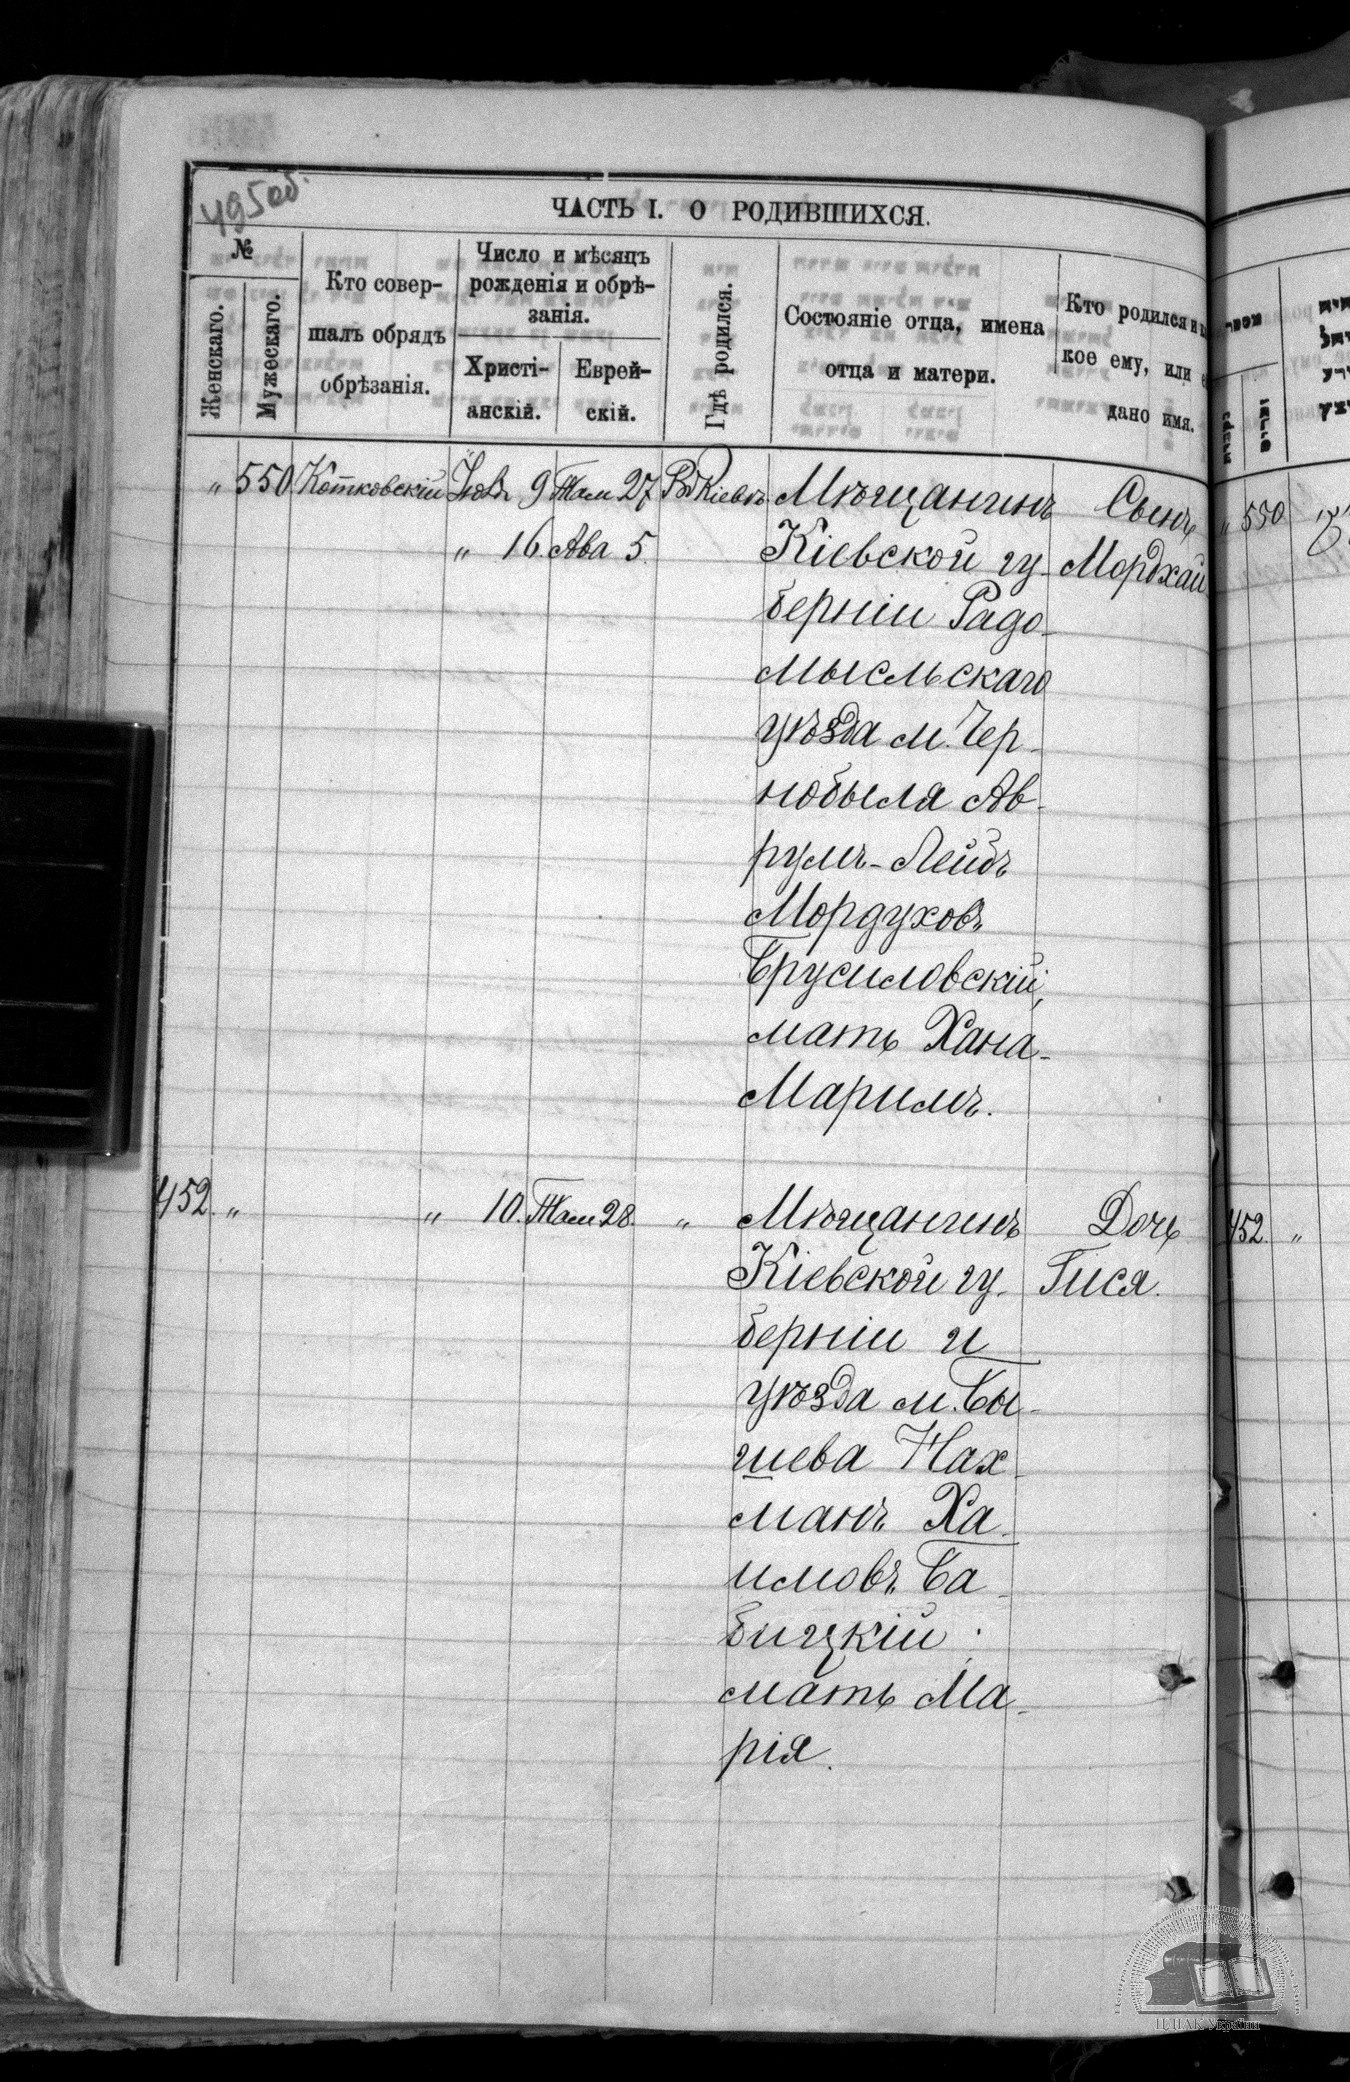 495об.
ЧАСТЬ I. О РОДИВШИХСЯ.
№
Женскаго.
Мужескаго.
Кто совер-
шалъ обрядъ
обрѣзанія.
Число и мѣсяцъ
рожденія и обрѣ-
занія.
Христі-
анскій.
Еврей-
скій.
Гдѣ родился.
Состояніе отца, имена
отца и матери.
Кто родился и ка
кое ему, или е
дано имя.
" 550 Котковскій Іюль 9 Там 27 Въ Кіевѣ Мѣщанинъ Сынъ
" 16 Ава 5. Кіевской гу- Мордхай
берніи Радо-
мысльскаго
уѣзда м. Чер-
нобыля Ав-
румъ-Лейбъ
Мордуховъ
Брусиловскій,
мать Хана-
Маримъ.
452. " " 10. Там 28. " Мѣщанинъ Дочь
Кіевской гу- Гися.
берніи и
уѣзда м. Бы-
шева Нах-
манъ Ха-
имовъ Ба-
бицкій;
мать Ма-
рія.
" 550
452. "
ЦДІАК України